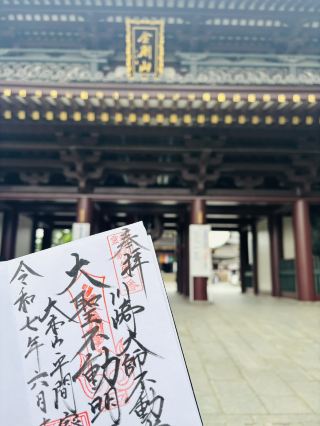 金剛山
奉拝
川崎大師不動
大聖不動明
大本山平間
令和七年六月